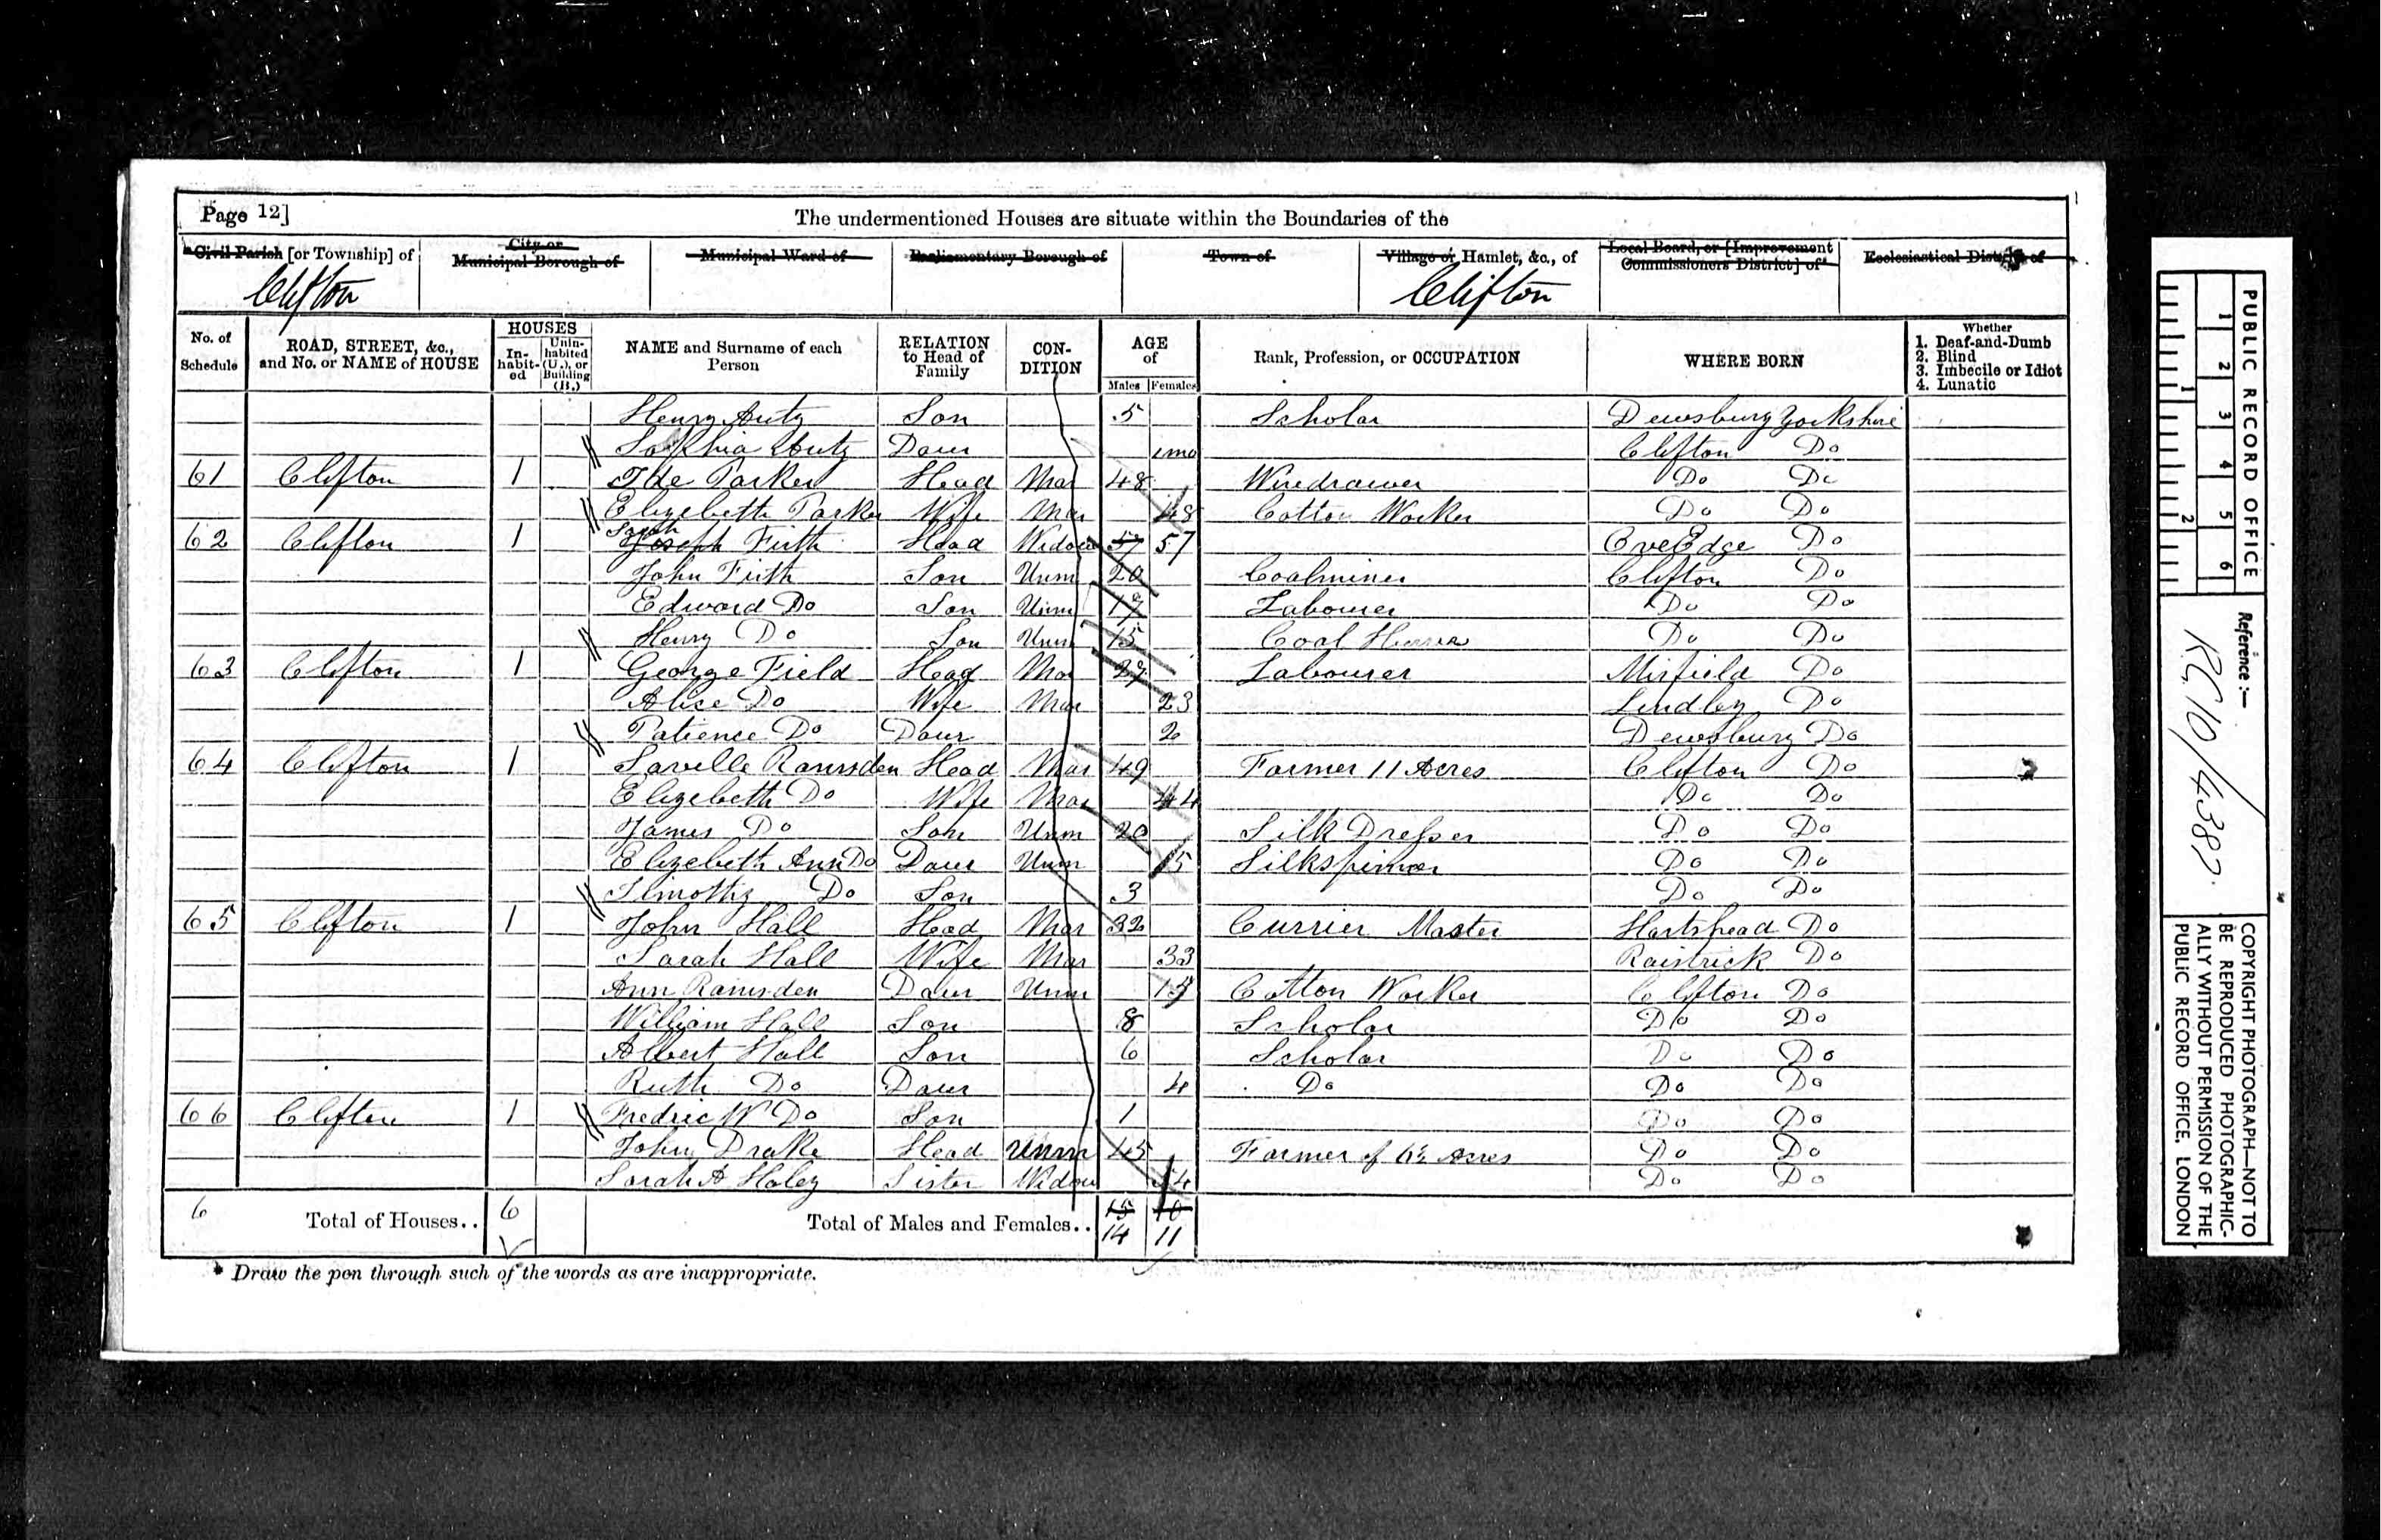 Page 12]
The undermentioned Houses are situate within the Boundaries of the
*Civil Parish [or Township] of
City or Municipal Borough of
Municipal Ward of
Parliamentary Borough of
Town of
Village or Hamlet, &c., of
Local Board, or [Improvement Commissioners District] of*
Ecclesiastical District of
Clifton Clifton
No. of Schedule
ROAD, STREET, &c., and No. or NAME of HOUSE
HOUSES
In-habit-ed
Unin-habited (U.), or Building (B.)
NAME and Surname of each Person
RELATION to Head of Family
CON-DITION
AGE of
Males Females
Rank, Profession, or OCCUPATION
WHERE BORN
Whether
1. Deaf-and-Dumb
2. Blind
3. Imbecile or Idiot
4. Lunatic
Henry Son 5 Scholar Dewsbury Yorkshire
Sophia Daur 1mo Clifton Do
61 Clifton 1 Parker Head Mar 48 Wiredrawer Do Do
Elizebeth Parker Wife Mar 48 Cotton Worker Do Do
62 Clifton 1 Sarah Joseph Firth Head Widow 57 57 Do
John Firth Son Unm 20 Coalminer Clifton Do
Edward Do Son Unm 17 Labourer Do Do
Henry Do Son Unm 15 Coal Do Do
63 Clifton 1 George Field Head Mar 27 Labourer Mirfield Do
Alice Do Wife Mar 23 Lindley Do
Patience Do Daur 2 Dewsbury Do
64 Clifton 1 Savelle Ramsden Head Mar 49 Farmer 11 Acres Clifton Do
Elizebeth Do Wife Mar 44 Do Do
James Do Son Unm 20 Silk Dresser Do Do
Elizebeth Ann Do Daur Unm 15 Silkspinner Do Do
Timothy Do Son 3 Do Do
65 Clifton 1 John Hall Head Mar 32 Currier Master Hartshead Do
Sarah Hall Wife Mar 33 Raistrick Do
Ann Ramsden Daur Unm Cotton Worker Clifton Do
William Hall Son 8 Scholar Do Do
Albert Hall Son 6 Scholar Do Do
Ruth Do Daur 4 Do Do Do
66 Clifton 1 Fredric W Do Son 1 Do Do
John Drake Head Unm 45 Farmer of Acres Do Do
Sarah A Holey Sister Widow Do Do
6 Total of Houses.. 6 Total of Males and Females.. 15 10
14 11
* Draw the pen through such of the words as are inappropriate.
PUBLIC RECORD OFFICE
1 2 3 4 5 6
1 2
Reference :—
RG 10/4387
COPYRIGHT PHOTOGRAPH—NOT TO
BE REPRODUCED PHOTOGRAPHIC-
ALLY WITHOUT PERMISSION OF THE
PUBLIC RECORD OFFICE, LONDON